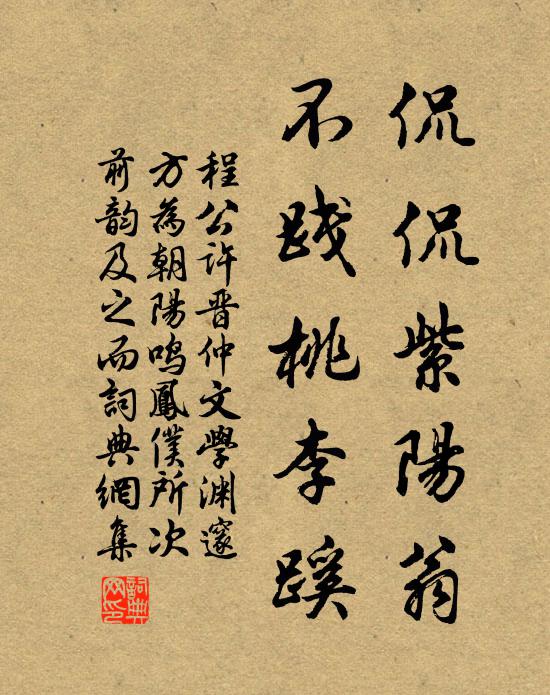 侃侃紫陽翁
不踐桃李蹊
程公許晋仲文學淵邃
方為朝陽鳴鳳僕所次
前韵及之而詞典網集
詞典網印